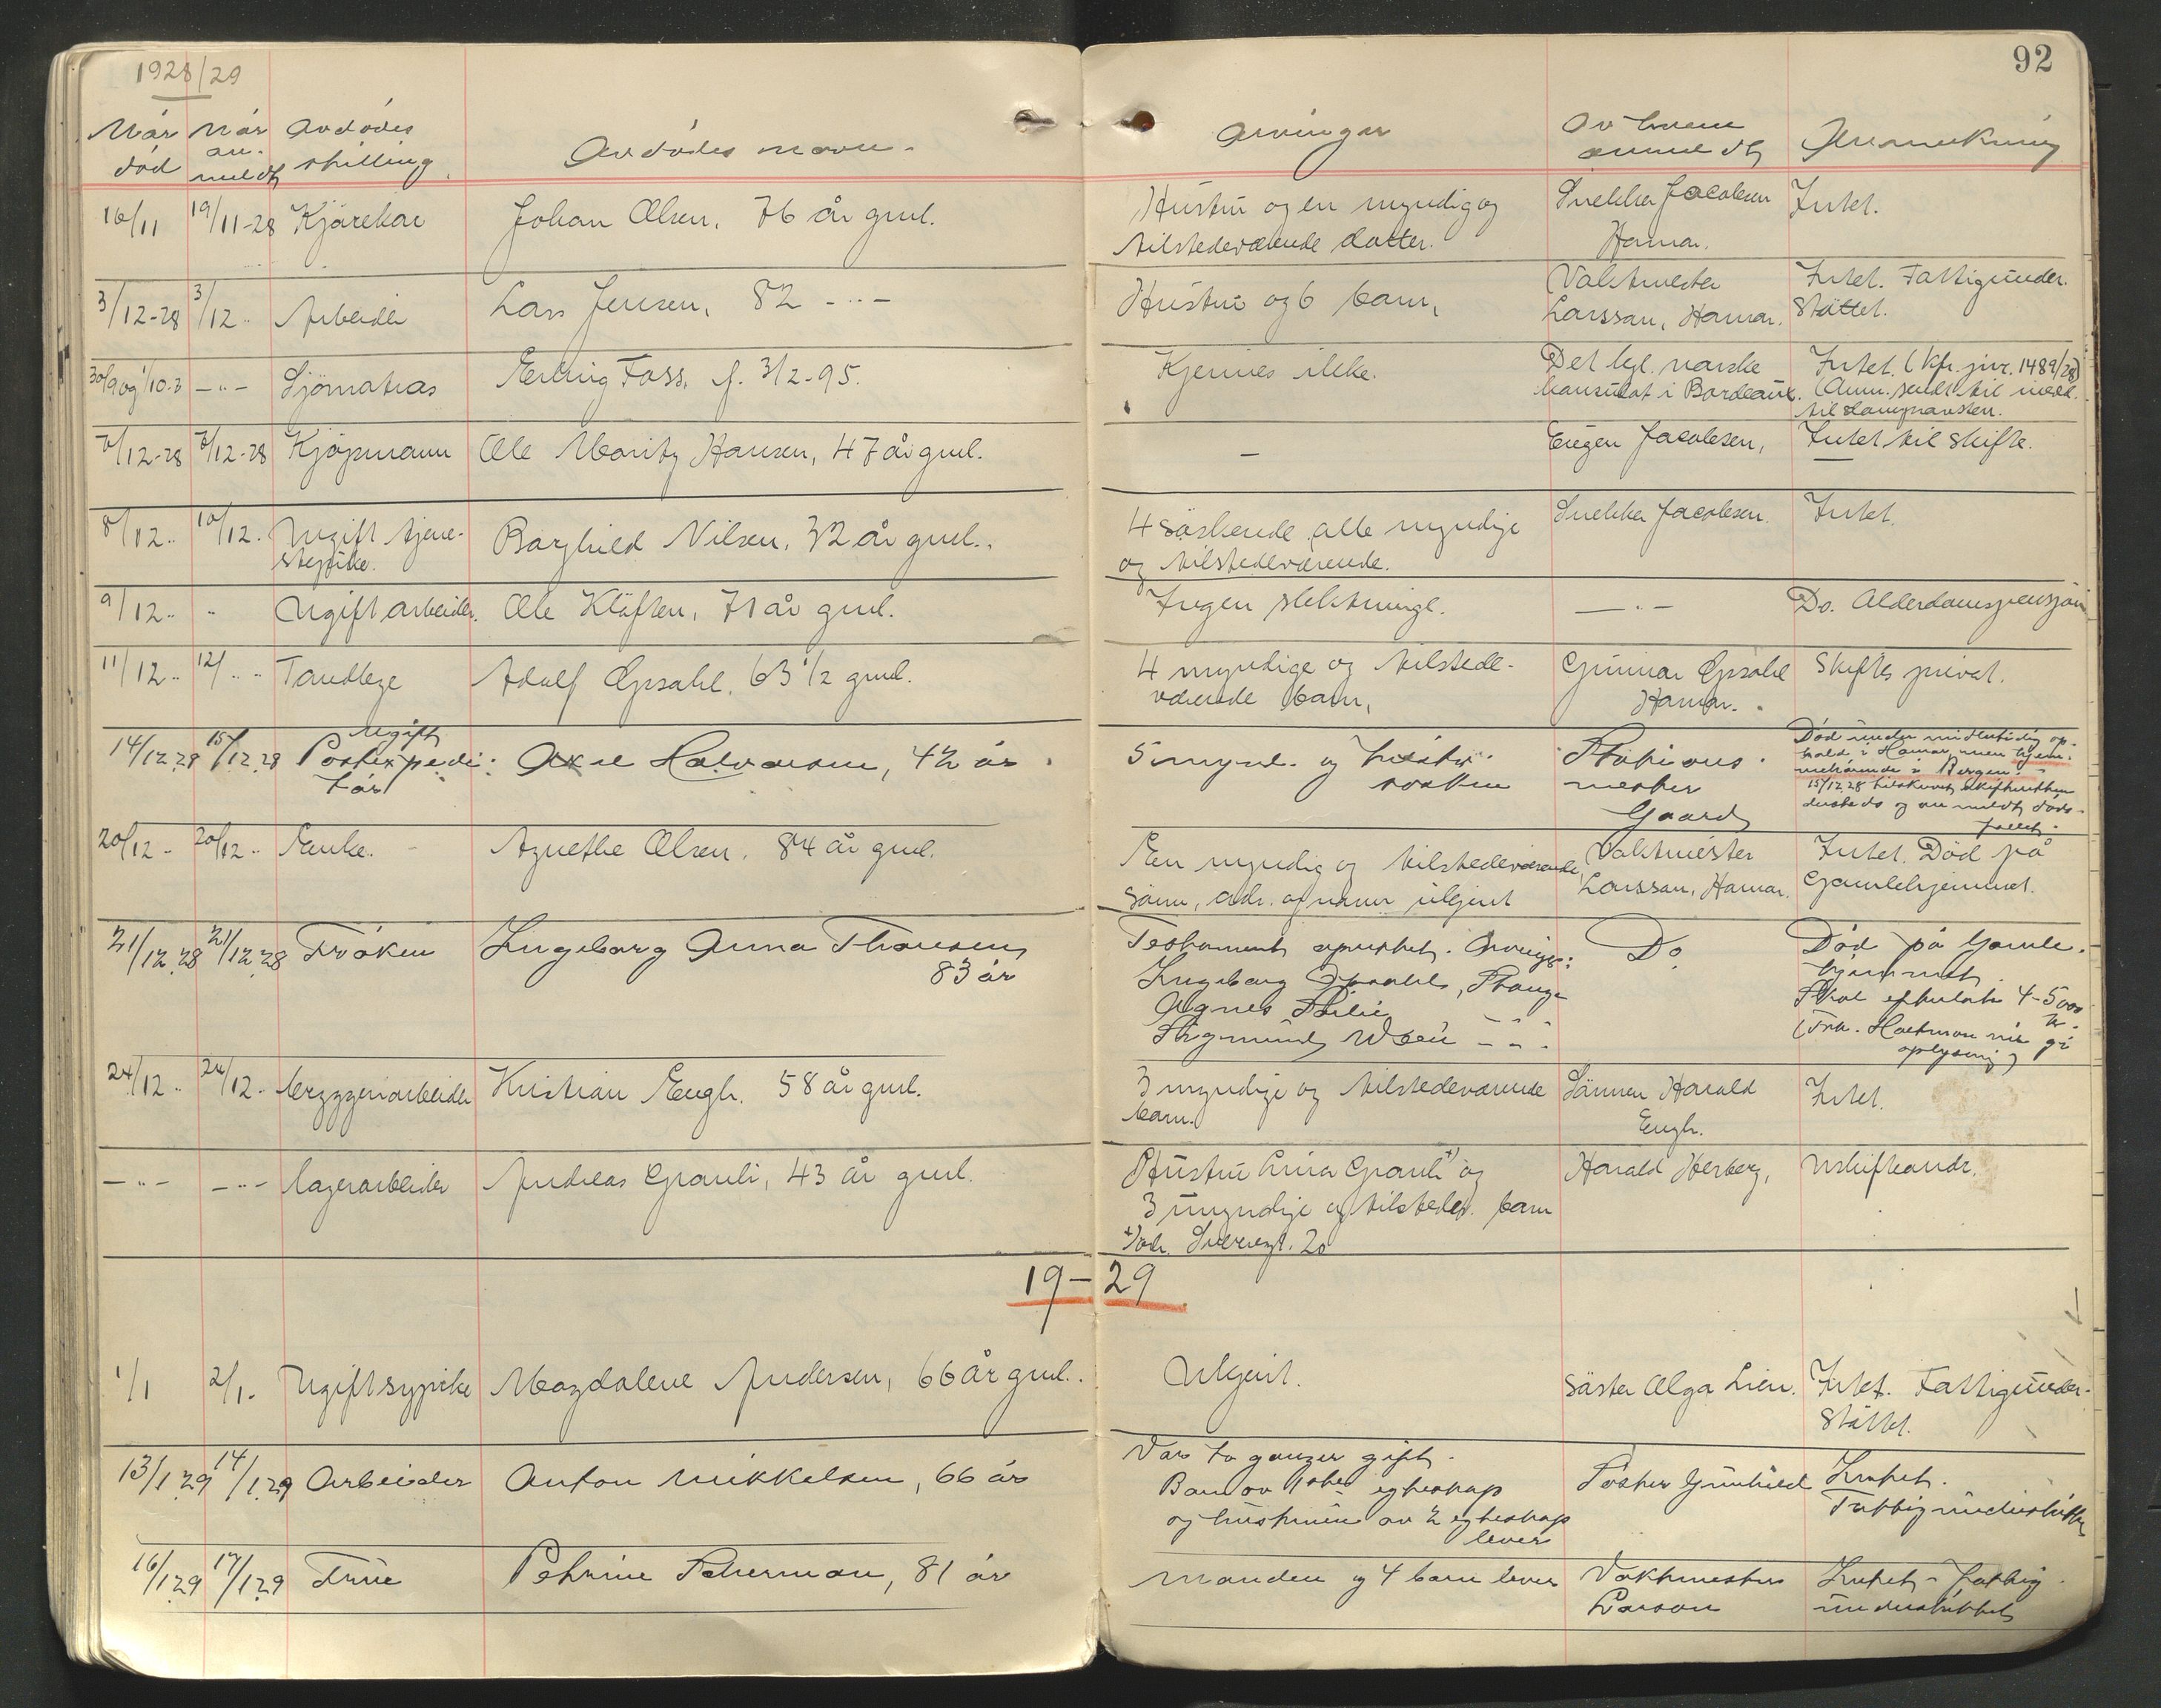 1928/29
92
Når død
Når an-meldt
Avdødes stilling.
Avdødes navn.
Arvinger
Av hvem anmeldt
Anmerkning
16/11 19/11-28 Kjørekar Johan Olsen, 76 år gml. Hustru og en myndig og Snekker Jacobsen Intet.
tilstedeværende datter. Hamar.
3/12-28 3/12 „ Arbeider Lars Jensen, 82 - „ - Hustru og 6 barn, Vaktmester Intet. Fattigunder-
Larssan, Hamar. støttet.
30/9 og 1/10. - „ - Sjømatros Erling Foss, f. 3/2-95. Kjennes ikke. Det kgl. norske Intet. (Kfr. jnr. 1489/28)
konsulat i Bordeaux. (Anm. sendt til
til
7/12-28 7/12-28 Kjøpmann Ole Moritz Hansen, 47 år gml. — Eugen Jacobsen, Intet til skifte.
8/12 „ 10/12. Ugift tjene- Borghild Nilsen, 32 år gml. 4 søskende alle myndige Snekker Jacobsen. Intet.
stepike. og tilstedeværende.
9/12 „ „ Ugift arbeider. Ole Kløften, 71 år gml. Ingen slektninge. — „ — Do. Alderdomspensjon
11/12 „ 12/ „ „ Tandlæge Adolf Opsahl, 63 1/2 gml. 4 myndige og tilstede- Gunnar Opsahl Skiftes privat.
værende barn, Hamar.
ugift
14/12 28 15/12 28 Postexpedi- Axel Halvorsen, 42 år 5 mynd. og tilstedev. Stations- Død under midlertidig op-
tør søsken mester hold i Hamar, men hjem-
Gaard mehørende i Bergen.
15/12 28 tilskrevet skifteretten
dersteds og anmeldt døds-
fallet.
20/12 „ 20/12 „ Enke. Agnethe Olsen, 84 år gml. En myndig og tilstedeværende Vaktmester Intet. Død på
sønn, adr. og navn ukjent Larssan, Hamar. Gamlehjemmet.
21/12 28 21/12 28 Frøken Ingeborg Anna Thomsen, Testament oprettet. Arvinger: Do. Død på Gamle-
83 år Ingeborg Opsahl, Stange hjemmet
Agnes Skal efterlate 4-5000
Sigmund - „ - kr.
(Frk. gi
oplysning)
24/12 „ 24/12 „ bryggeriarbeider Kristian Engh. 58 år gml. 3 myndige og tilstedeværende Sønnen Harald Intet.
barn. Engh.
- „ - - „ - lagerarbeider Andreas Granli, 43 år gml. Hustru Anna Granli +) og Harald Herberg, Uskifteandr.
3 umyndige og tilstedev. barn
+) adr. 20
19-29
1/1 2/1. Ugift sypike Magdalene Andersen, 66 år gml. Ukjent. søster Olga Lien. Intet. Fattigunder-
støttet.
13/1 29 14/1 29 Arbeider Anton Mikkelsen, 66 år Var to ganger gift. Søster Gunhild Intet.
Barn av 1ste egteskap Fattigunderstøttet
og hustruen av 2 egteskap
lever
16/1 29 17/1 29 Frue Petrine 81 år Manden og 4 barn lever Vaktmester Intet - fattig
Larson understøttet